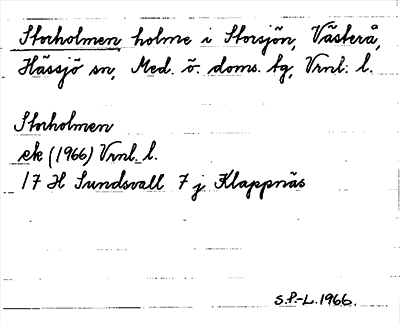 Storholmen, holme i Storsjön, Västerå,
Hässjö sn, Med. ö. doms. tg, Vrnl. l.
Storholmen
ek (1966) Vrnl. l.
17 H Sundsvall 7 j Klappnäs
S.P.-L. 1966.